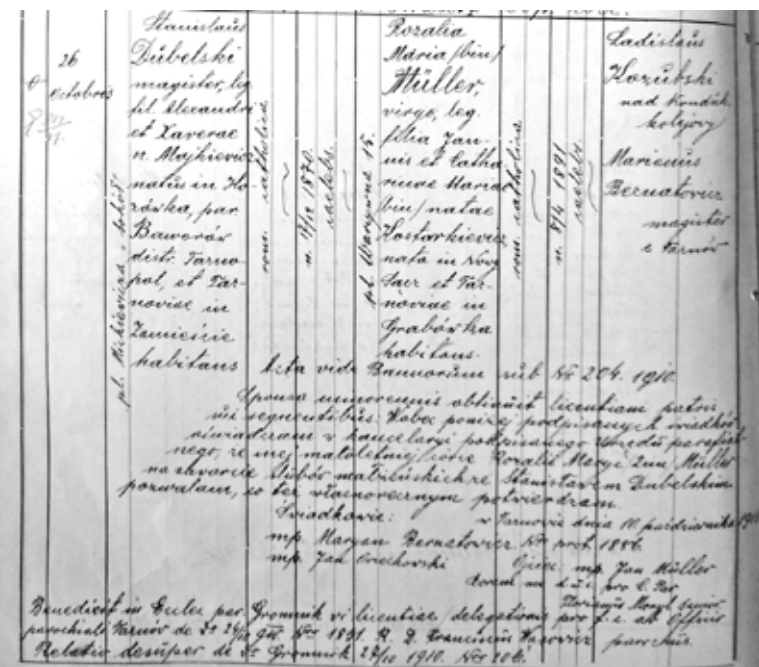 26
Octobres
Stanislaus
Dubelski
magister, leg.
fil. Alexandri
et Xaverae
n. Majkiewicz
natus in Ho
zówka, par.
Baworów
distr. Tarno
pol, et Tar-
noviae in
Zamieście
habitans
pl. Mickiewicza
rom. catholica
1870
caelebs
Rozalia
Maria (bin)
Müller,
virgo, leg.
filia Joan-
nis et Catha
rinae Maria
(bin) natae
Kostarkiewicz
nata in Nowy
Sacz et Tar-
noviae in
Grabówka
habitans.
15.
rom. catholica
n. 8/4 1891
caelebs
Ladislaus
Kozubski
nad Konduk.
kolejowy
Marianus
Bernatowicz
magister
e Tarnów
Acta vide Bannorum sub Nr 204. 1910.
Sponsa minorennis obtinuit licentiam patris
sui sequentibus: Wobec poniżej podpisanych świadków
oświadczam w kancelaryi podpisanego Urzędu parafial-
nego, że mej małoletniej córce Rozalii Maryi 2im. Müller
na zawarcie ślubów małżeńskich ze Stanisławem Dubelskim
pozwalam, co też własnoręcznym potwierdzam.
Świadkowie: w Tarnowie dnia 10. października 1910
mp. Maryan Bernatowicz Nr prot. 1886.
mp. Jan Ojciec: mp. Jan Müller
Coram me
Benedixit in Eccles. par. Gromnik vi licentiae (delegationis pro f. e. ab Officio
parochiali Tarnów de Nro 1891. R. D. Franciscus parochus.
Relatio desuper de Gromnik 27/10 1910. Nro 206.